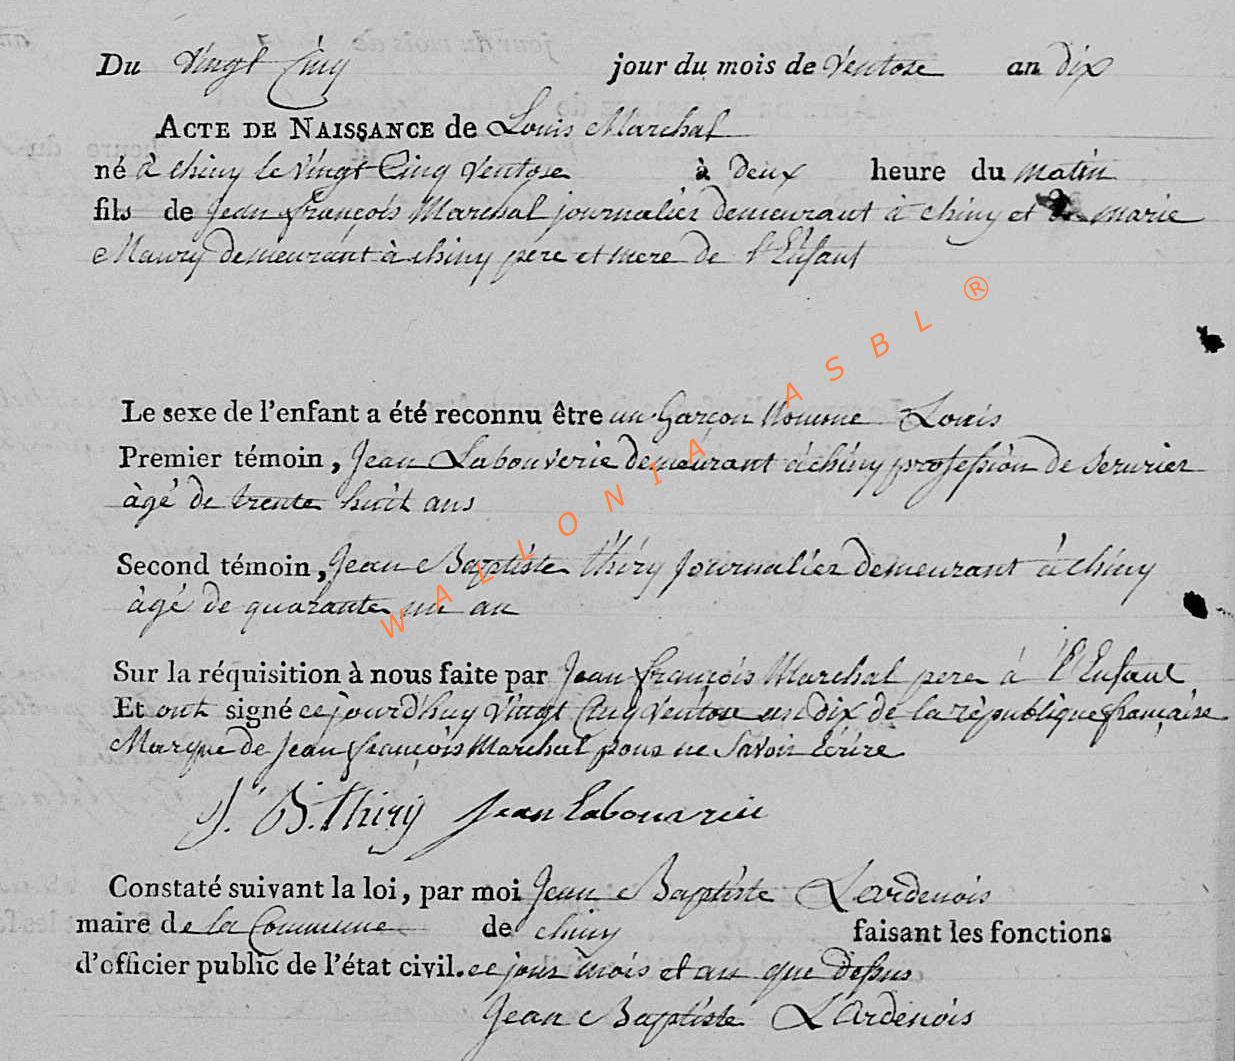 Du Vingt Cinq jour du mois de Ventose an dix
ACTE DE NAISSANCE de Louis Marchal
né à chiny le Vingt Cinq Ventose à deux heure du matin
fils de Jean françois Marchal journalier demeurant à chiny et marie
Maury demeurant à chiny pere et mere de l'Enfant
Le sexe de l'enfant a été reconnu être un Garçon Nomme Louis
Premier témoin, Jean Labouverie demeurant à chiny profession de serurier
àgé de trente huit ans
Second témoin, Jean Baptiste thiry journalier demeurant à chiny
àgé de quarante un an
Sur la réquisition à nous faite par Jean françois Marchal pere à l'Enfant
Et ont signé ce jourd'huy Vingt Cinq Ventose an dix de la rèpublique française
Marque de Jean françois Marchal pour ne Savoir Ecrire
J. B. thiry Jean Labouverie
Constaté suivant la loi, par moi Jean Baptiste Lardenois
maire de la Commune de chiny faisant les fonctions
d'officier public de l'état civil. ce jour mois et an que dessus
Jean Baptiste L'Ardenois
WALLONIA ASBL ®